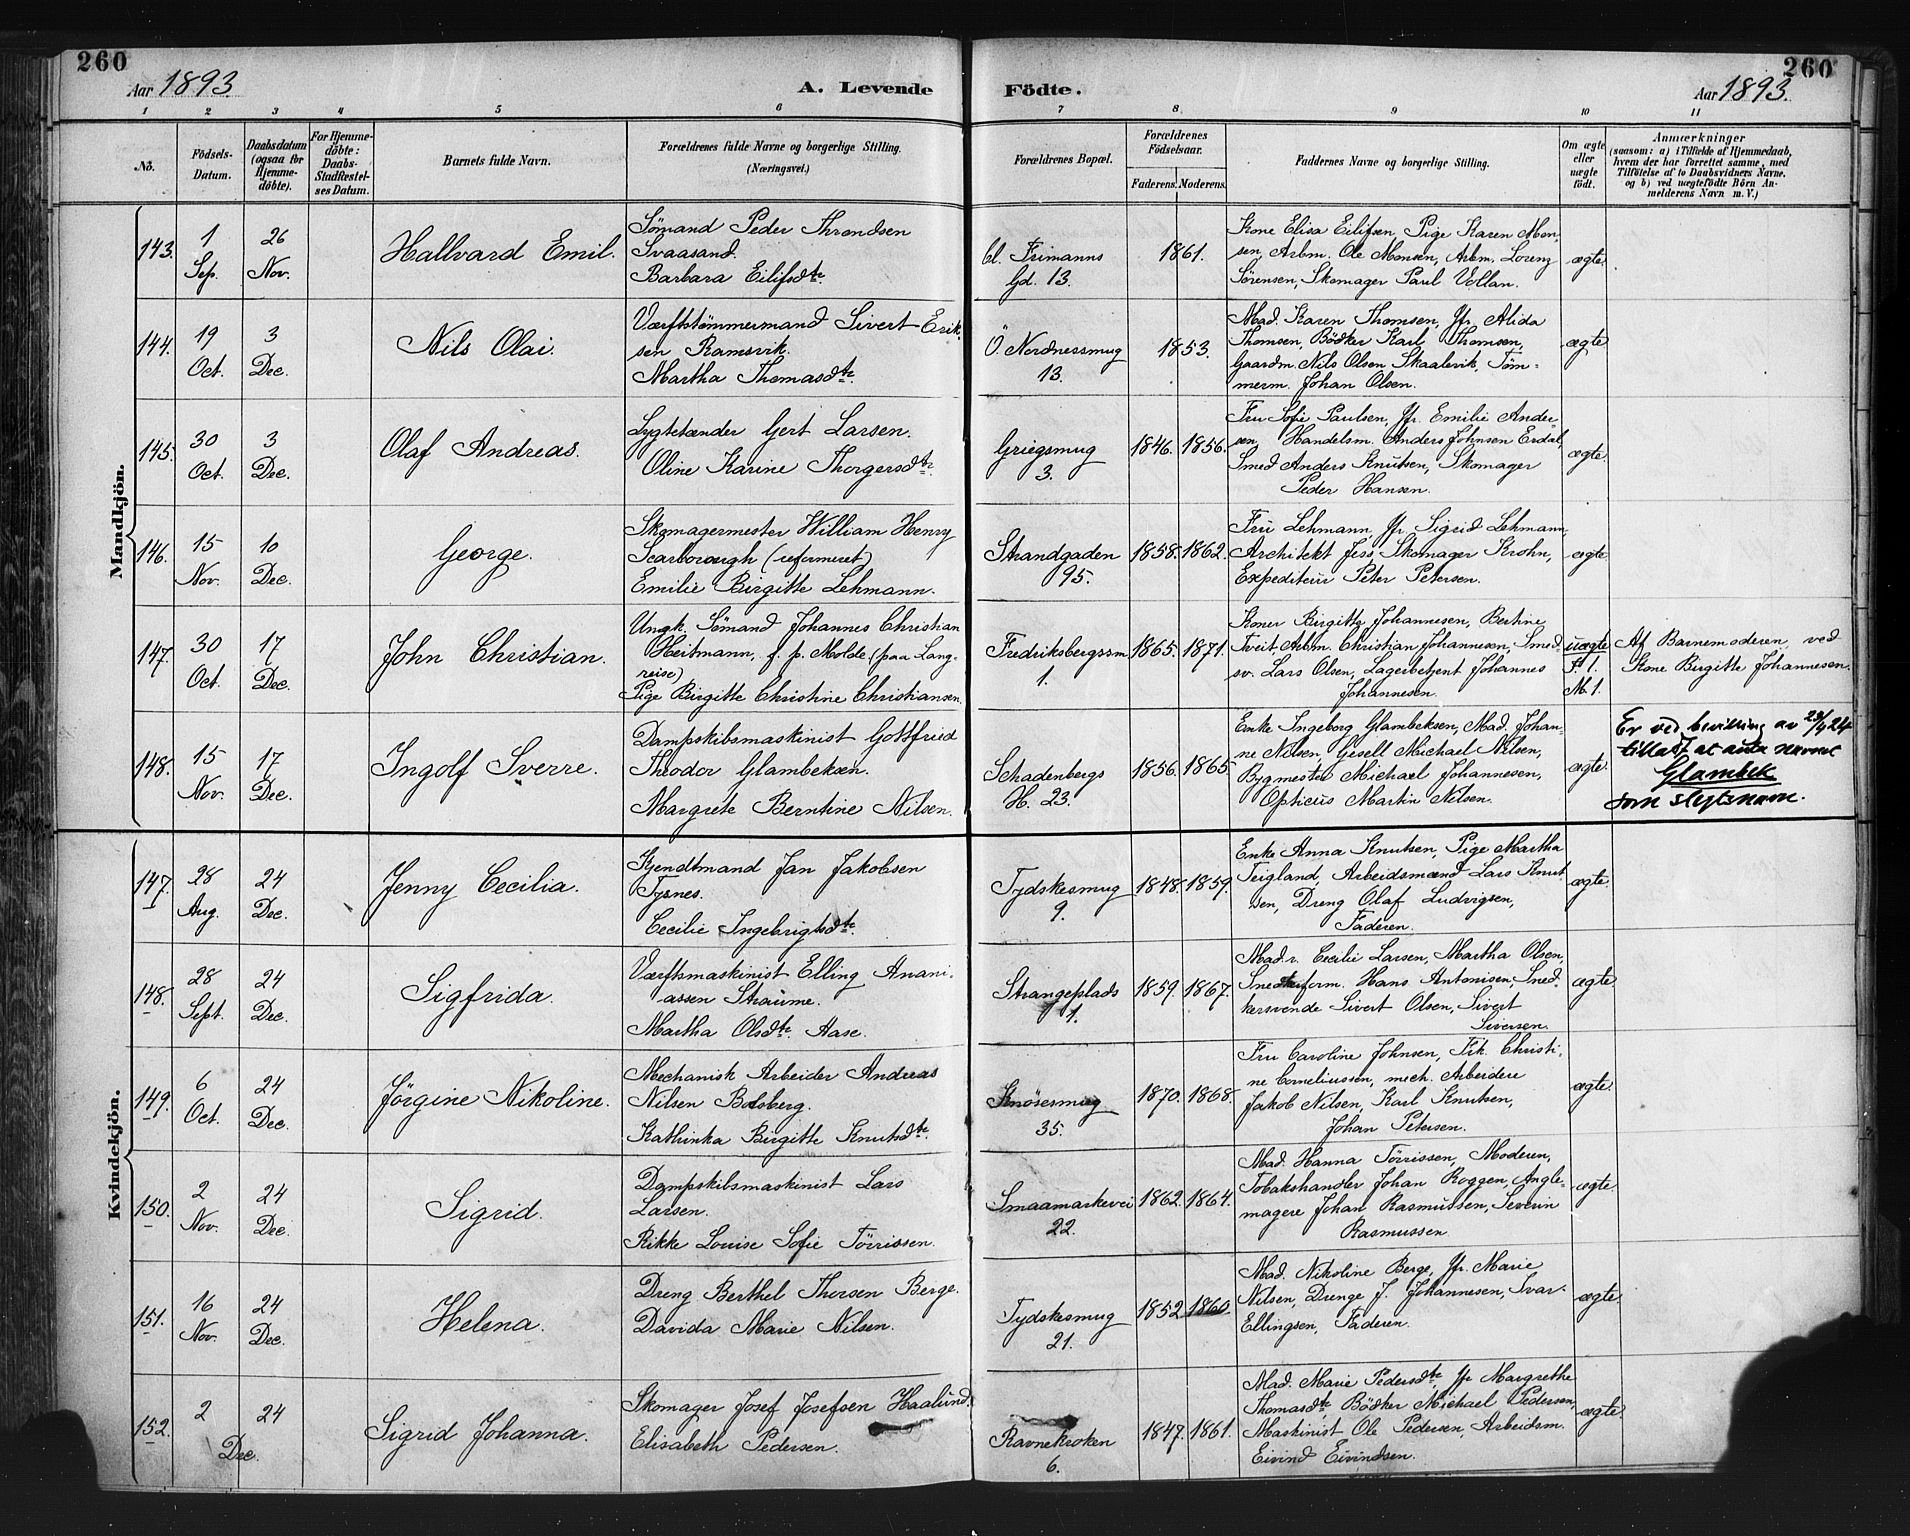 260
Aar 1893.
A. Levende
Födte.
260
Aar 1893.
1 2 3 4 5 6 7 8 9 10 11
No.
Födsels-Datum.
Daabsdatum (ogsaa for Hjemme-döbte).
For Hjemme-döbte: Daabs-Stadfæstel-ses Datum.
Barnets fulde Navn.
Forældrenes fulde Navne og borgerlige Stilling.
(Næringsvei.)
Forældrenes Bopæl.
Forældrenes Födselsaar.
Faderens. Moderens.
Faddernes Navne og borgerlige Stilling.
Om ægte eller uægte födt.
Anmærkninger
(saasom: a) i Tilfælde af Hjemmedaab,
hvem der har forrettet samme, med
Tilföielse af to Daabsvidners Navne.
og b) ved uægtefödte Börn An-
melderens Navn m. V.)
Mandkjön.
143. 1 Sep. 26 Nov.
Hallvard Emil.
Sömand Peder Throndsen
Svaasand.
Barbara Eilifsdtr.
bl. Frimanns
Gd. 13.
1861.
Kone Elisa Eilifsen, Pige Karen Mon-
sen, Arbm. Ole Monsen, Arbm. Lorenz
Sörensen, Skomager Paul Vollan.
ægte.
144. 19 Oct. 3 Dec.
Nils Olai.
Værftstömmermand Sivert Erik-
sen Ramsvik.
Martha Thomasdtr.
Ö. Nordnessmug
13.
1853.
Mad. Karen Thomsen, Jfr. Alida
Thomsen, Bödker Karl Thomsen,
Gaardm. Nils Olsen Skaalevik, Töm-
merm. Johan Olsen.
ægte
145. 30 Oct. 3 Dec.
Olaf Andreas.
Lygtetænder Gert Larsen.
Oline Karine Thorgersdtr.
Griegsmug
3.
1846. 1856.
Fru Sofie Paulsen, Jfr. Emilie Ander-
sen, Handelsm. Anders Johnsen Erdal,
Smed Anders Knutsen, Skomager
Peder Hansen.
ægte.
146. 15 Nov. 10 Dec.
George.
Skomagermester William Henry
Scarborough (reformeret)
Emilie Birgitte Lehmann.
Strandgaden
95.
1858. 1862.
Fru Lehmann, Jfr. Sigrid Lehmann,
Architekt Jess, Skomager Krohn,
Expediteur Peter Petersen.
ægte
147. 30 Oct. 17 Dec.
John Christian.
Ungk. Sömand Johannes Christian
Heitmann, f. p. Molde (paa Lang-
reise)
Pige Birgitte Christine Christiansen.
Fredriksbergssm.
1.
1865. 1871.
Koner Birgitte Johannesen, Bertine
Tveit, Arbm. Christian Johannesen, Smed-
sv. Lars Olsen, Lagerbetjent Johannes
Johannesen.
uægte
F. 1.
M. 1.
Af Barnemoderen ved
Kone Birgitte Johannesen.
148. 15 Nov. 17 Dec.
Ingolf Sverre.
Dampskibsmaskinist Gottfried
Theodor Glambeksen.
Margrete Berntine Nilsen.
Schadenbergs
H. 23.
1856. 1865.
Enke Ingeborg Glambeksen, Mad. Johan-
ne Nilsen, Gisell Michael Nilsen,
Bygmester Michael Johannesen,
Opticus Martin Nilsen.
ægte.
Er ved bevilling av 23/9 24
tillatt at anta navnet
Glambek
som slegtsnavn.
Kvindekjön.
147. 28 Aug. 24 Dec.
Jenny Cecilia.
Kjendtmand Jan Jakobsen
Tysnes.
Cecilie Ingebrigtsdtr.
Tydskesmug
9.
1848. 1859.
Enke Anna Knutsen, Pige Martha
Teigland, Arbeidsmænd Lars Knut-
sen, Dreng Olaf Ludvigsen,
Faderen.
ægte.
148. 28 Sept. 24 Dec.
Sigfrida.
Værftsmaskinist Elling Anani-
assen Straume.
Martha Olsdtr. Aase.
Strangeplads
1.
1859. 1867.
Mad.r. Cecilie Larsen, Martha Olsen,
Snedkerform. Hans Antonisen, Sned-
kersvende Sivert Olsen, Sivert
Siversen.
ægte.
149. 6 Oct. 24 Dec.
Jörgine Nikoline.
Mechanisk Arbeider Andreas
Nilsen Botsberg.
Kathinka Birgitte Knutsdtr.
Knösesmug
35.
1870. 1868.
Fru Caroline Johnsen, Frk. Christi-
ne Corneliussen, mech. Arbeidere
Jakob Nilsen, Karl Knutsen,
Johan Petersen.
ægte.
150. 2 Nov. 24 Dec.
Sigrid.
Dampskibsmaskinist Lars
Larsen.
Rikke Louise Sofie Törrissen.
Smaamarkevei
22.
1862. 1864.
Mad. Hanna Törrissen, Moderen,
Tobakshandler Johan Roggen, Angle-
magere Johan Rasmussen, Severin
Rasmussen
ægte.
151. 16 Nov. 24 Dec.
Helena.
Dreng Berthel Thorsen Berge.
Davida Marie Nilsen.
Tydskesmug
21.
1852 1860.
Mad. Nikoline Berge, Jfr. Marie
Nilsen, Drenge J. Johannesen, Ivar
Ellingsen, Faderen.
ægte.
152. 2 24 Dec.
Sigrid Johanna.
Skomager Josef Josefsen Haalund.
Elisabeth Pedersen.
Ravnekroken
6.
1847. 1861.
Mad. Marie Pedersdtr, Jfr. Margrethe
Thomasdtr, Bödker Michael Pedersen,
Maskinist Ole Pedersen, Arbeidsm.
Eivind Eivindsen.
ægte.